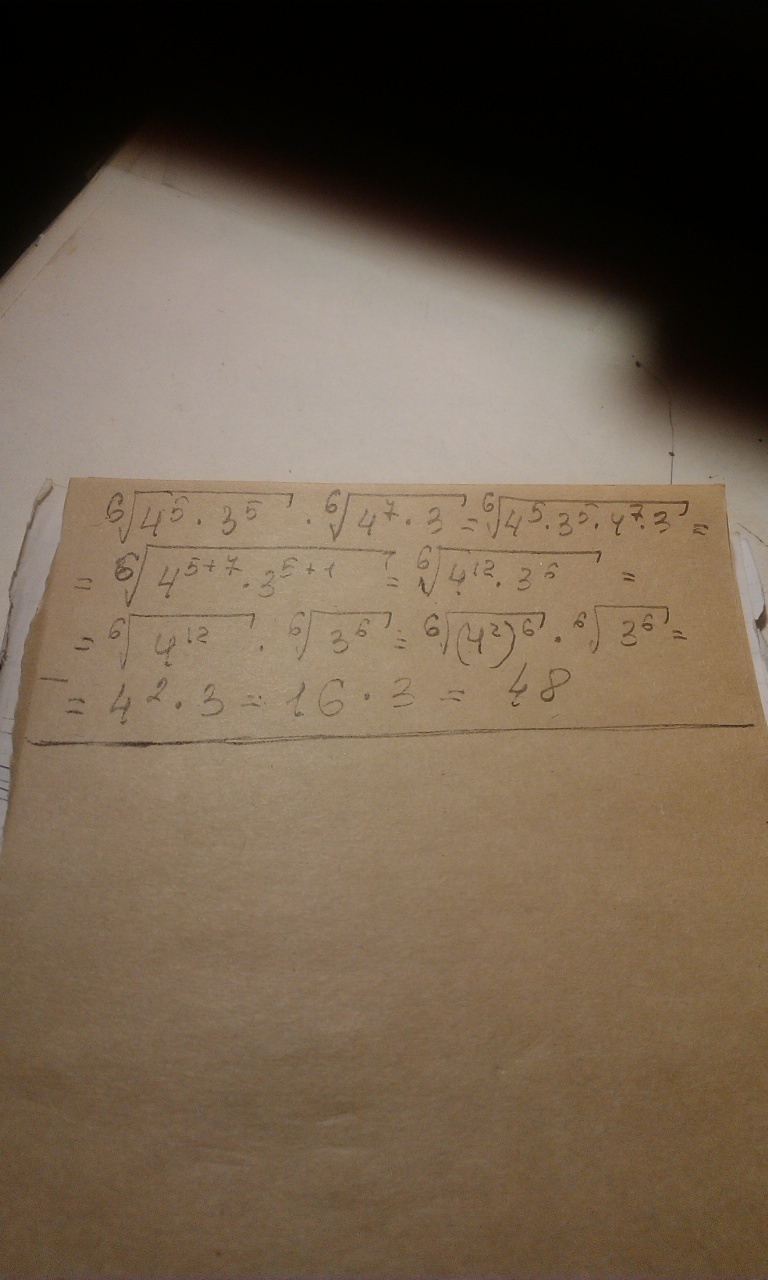 ⁶√(4⁵·3⁵) · ⁶√(4⁷·3) = ⁶√(4⁵·3⁵·4⁷·3) =
= ⁶√(4⁵⁺⁷·3⁵⁺¹) = ⁶√(4¹²·3⁶) =
= ⁶√(4¹²) · ⁶√(3⁶) = ⁶√((4²)⁶) · ⁶√(3⁶) =
= 4²·3 = 16·3 = 48